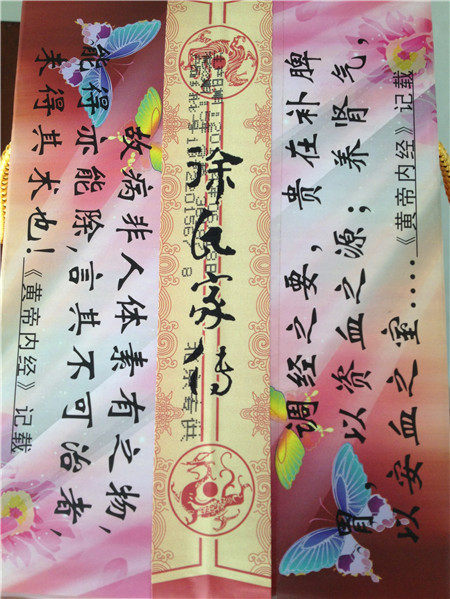 故病非人体素有之物，
能得亦能除，言其不可治者，
未得其术也！《黄帝内经》记载
家传
专供
调经之要，贵在补脾
胃，以资血之源；养肾气，
以安血之室....《黄帝内经》记载